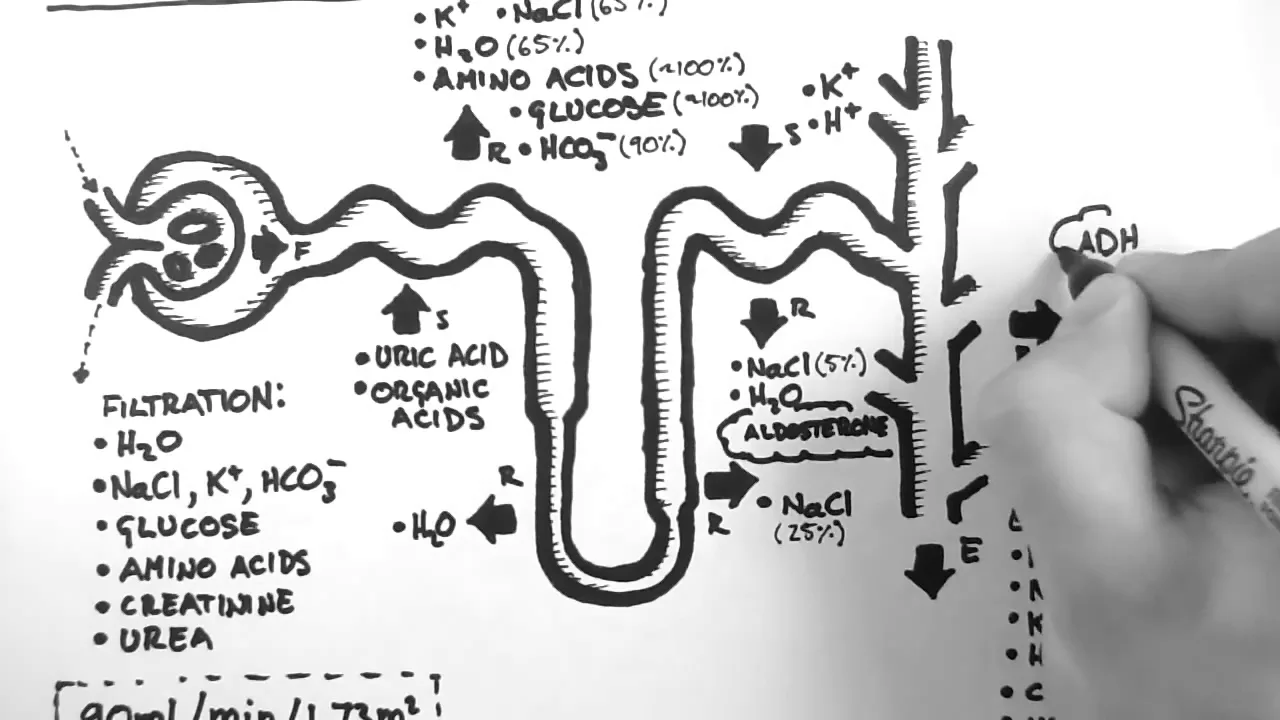 • K⁺ • NaCl (65%)
• H₂O (65%)
• AMINO ACIDS (~100%)
• GLUCOSE (~100%)
R • HCO₃⁻ (90%)
• K⁺
S • H⁺
ADH
F
S
• URIC ACID
• ORGANIC
ACIDS
R
• NaCl (5%)
• H₂O
ALDOSTERONE
FILTRATION:
• H₂O
• NaCl, K⁺, HCO₃⁻
• GLUCOSE
• AMINO ACIDS
• CREATININE
• UREA
R
• H₂O
R
• NaCl
(25%)
E
• K
• H
• C
90ml/min/1.73m²
Sharpie